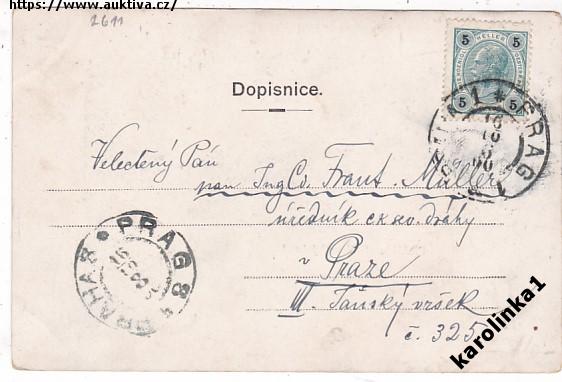 https://www.auktiva.cz/
2611
5 5
HELLER
5 5
Dopisnice.
PRAG 1
Velectěný Pán
pan Ing Cd. Frant. Müller
úředník
dráhy
v Praze
III. Jánský vršek
č. 325
PRAG 8 * PRAHA 8
karolinka1